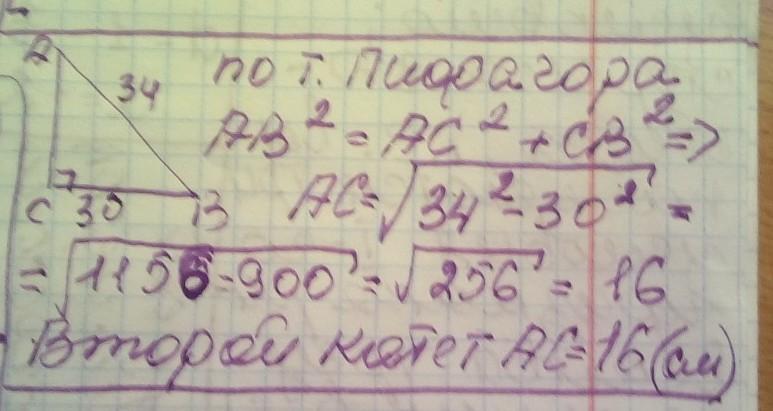 A
34
по т. Пифагора
AB² = AC² + CB² =>
C 30 B
AC = √34² - 30² =
= √1156 - 900 = √256 = 16
Второй катет AC = 16 (см)